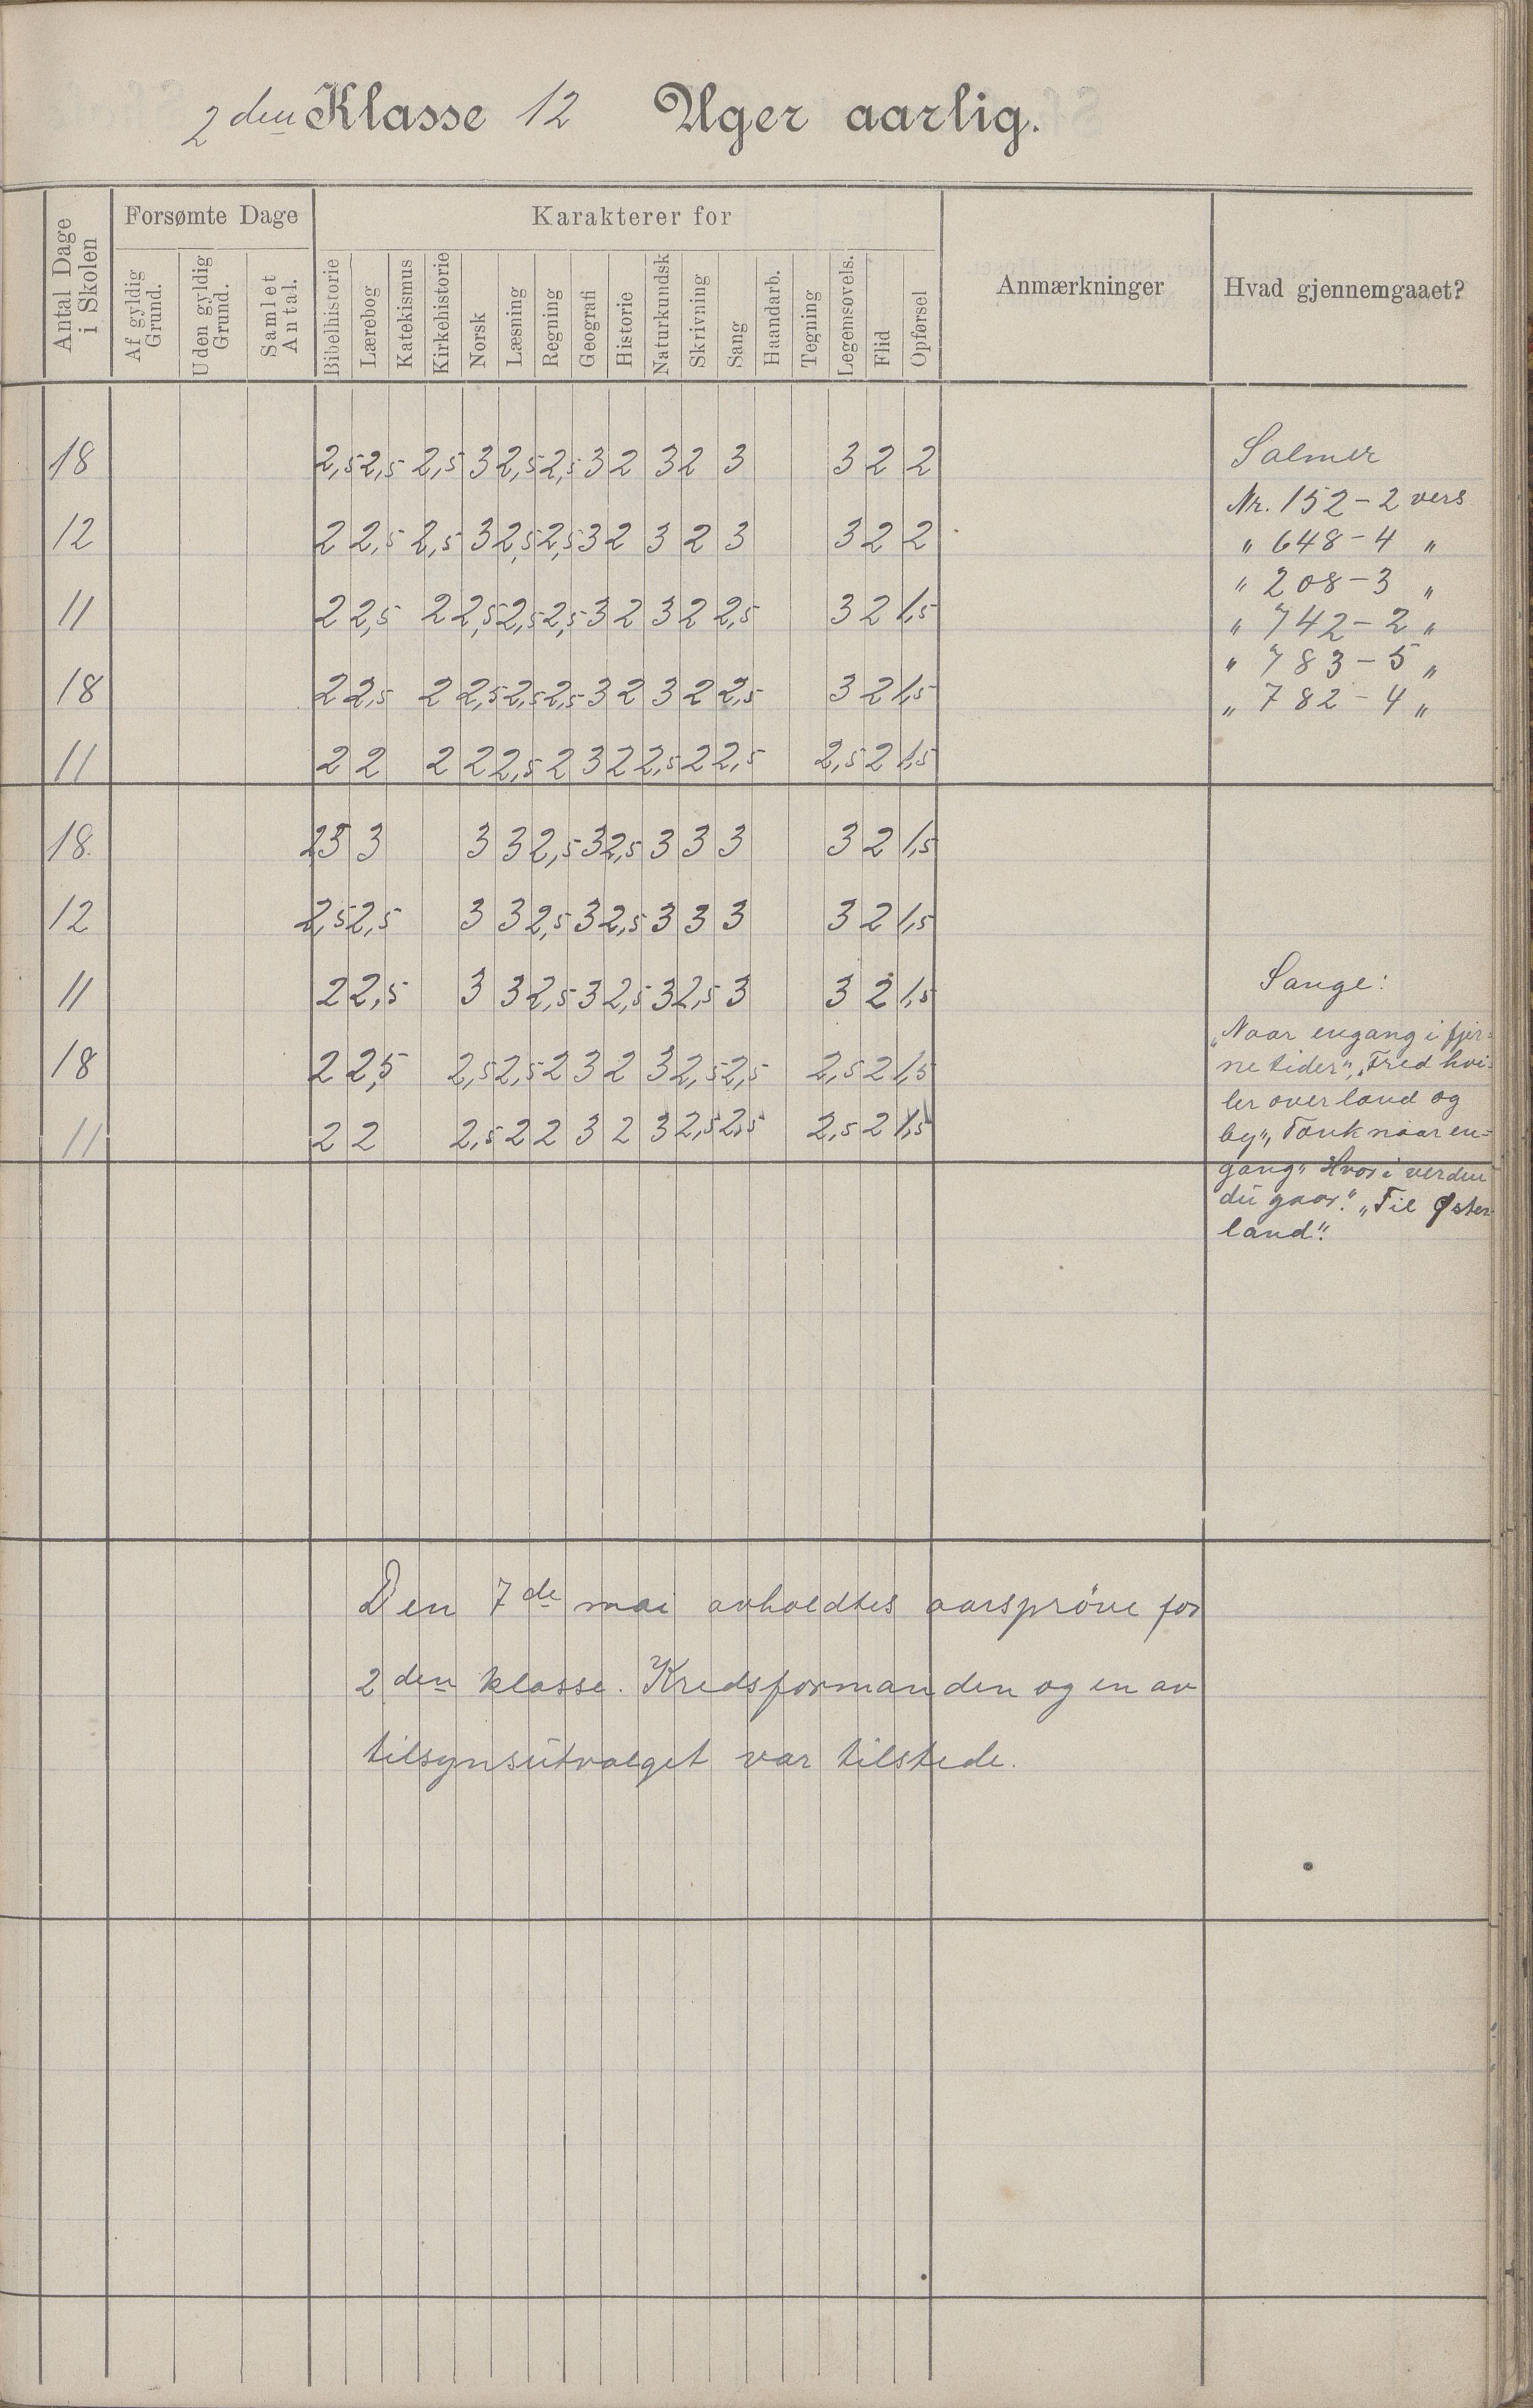 2den Klasse 12 Uger aarlig.
Antal Dage i Skolen
Forsømte Dage
Af gyldig Grund.
Uden gyldig Grund.
Samlet Antal.
Karakterer for
Bibelhistorie
Lærebog
Katekismus
Kirkehistorie
Norsk
Læsning
Regning
Geografi
Historie
Naturkundsk
Skrivning
Sang
Haandarb.
Tegning
Legemsøvels.
Flid
Opførsel
Anmærkninger
Hvad gjennemgaaet?
18 2,5 2,5 2,5 3 2,5 2,5 3 2 3 2 3 3 2 2
12 2 2,5 2,5 3 2,5 2,5 3 2 3 2 3 3 2 2
11 2 2,5 2 2,5 2,5 2,5 3 2 3 2 2,5 3 2 1,5
18 2 2,5 2 2,5 2,5 2,5 3 2 3 2 2,5 3 2 1,5
11 2 2 2 2 2,5 2 3 2 2,5 2 2,5 2,5 2 1,5
18. 2,5 3 3 3 2,5 3 2,5 3 3 3 3 2 1,5
12 2,5 2,5 3 3 2,5 3 2,5 3 3 3 3 2 1,5
11 2 2,5 3 3 2,5 3 2,5 3 2,5 3 3 2 1,5
18 2 2,5 2,5 2,5 2 3 2 3 2,5 2,5 2,5 2 1,5
11 2 2 2,5 2 2 3 2 3 2,5 2,5 2,5 2 1,5
Salmer
Nr. 152 - 2 vers
" 648 - 4 "
" 208 - 3 "
" 742 - 2 "
" 783 - 5 "
" 782 - 4 "
Sange:
"Naar engang i fjer-
ne tider", "Fred hvi-
ler over land og
by", Tænk naar en-
gang" Hvor i verden
du gaar." "Til Øster-
land".
Den 7de mai avholdtes aarsprøve for
2den klasse. Kredsformanden og en av
tilsynsutvalget var tilstede.